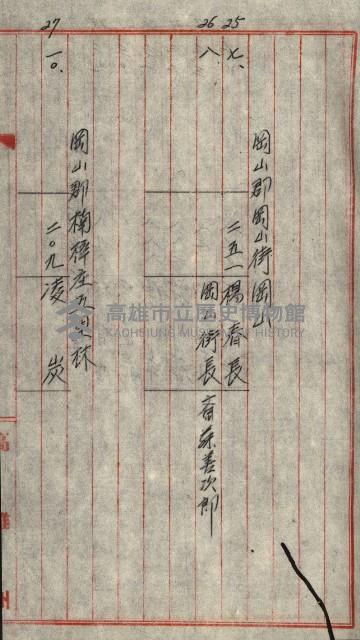 25 七、
岡山郡岡山街岡山
二五一 楊春長
26 八、
岡山街長 斉藤善次郎
27 一〇、
岡山郡楠梓庄五里林
二〇九 凌 炭
高雄州
高雄市立歷史博物館
KAOHSIUNG MUSEUM OF HISTORY